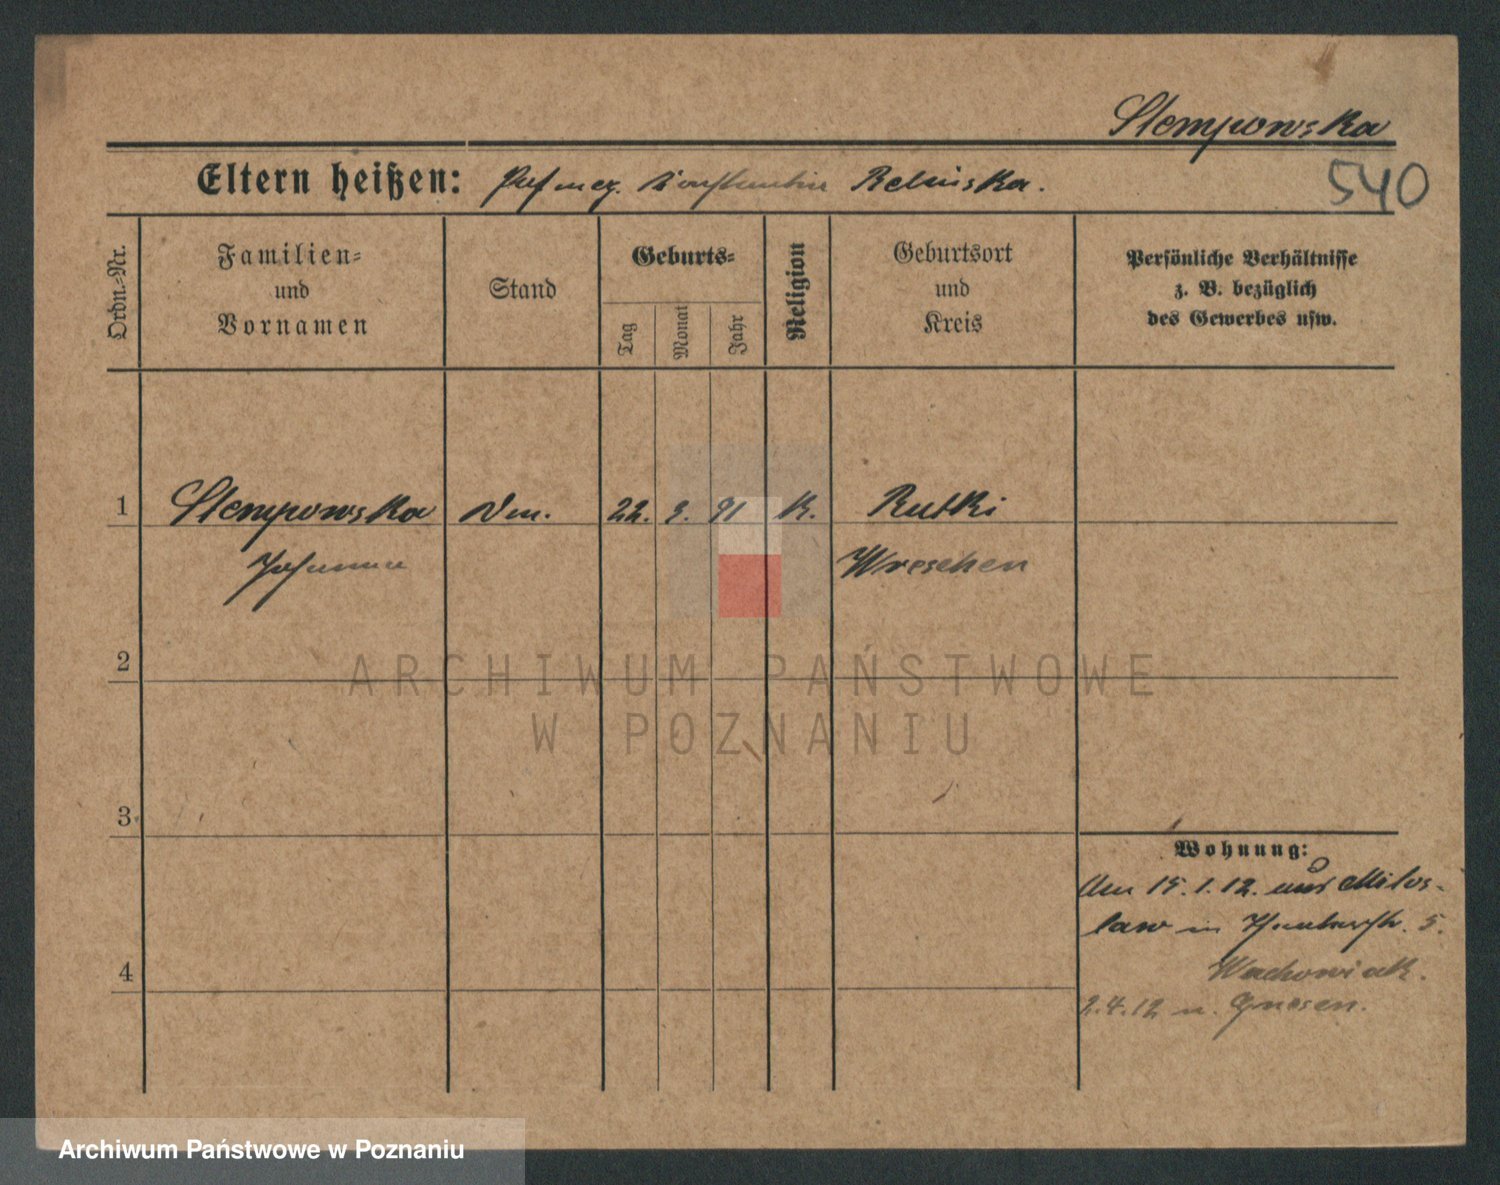 Stempowska
Eltern heißen: Konstantin Relniska.
540
Ordn.-Nr.
Familien-
und
Vornamen
Stand
Geburts-
Tag
Monat
Jahr
Religion
Geburtsort
und
Kreis
Persönliche Verhältnisse
z. B. bezüglich
des Gewerbes usw.
1 Stempowska 22. 9. 91 K. Rutki
Johanna Wreschen
2
3
4
Wohnung:
Am 15.1.12. aus Milos-
law in 5.
Wachowiak.
2.4.12 n. Gnesen.
ARCHIWUM PAŃSTWOWE
W POZNANIU
Archiwum Państwowe w Poznaniu